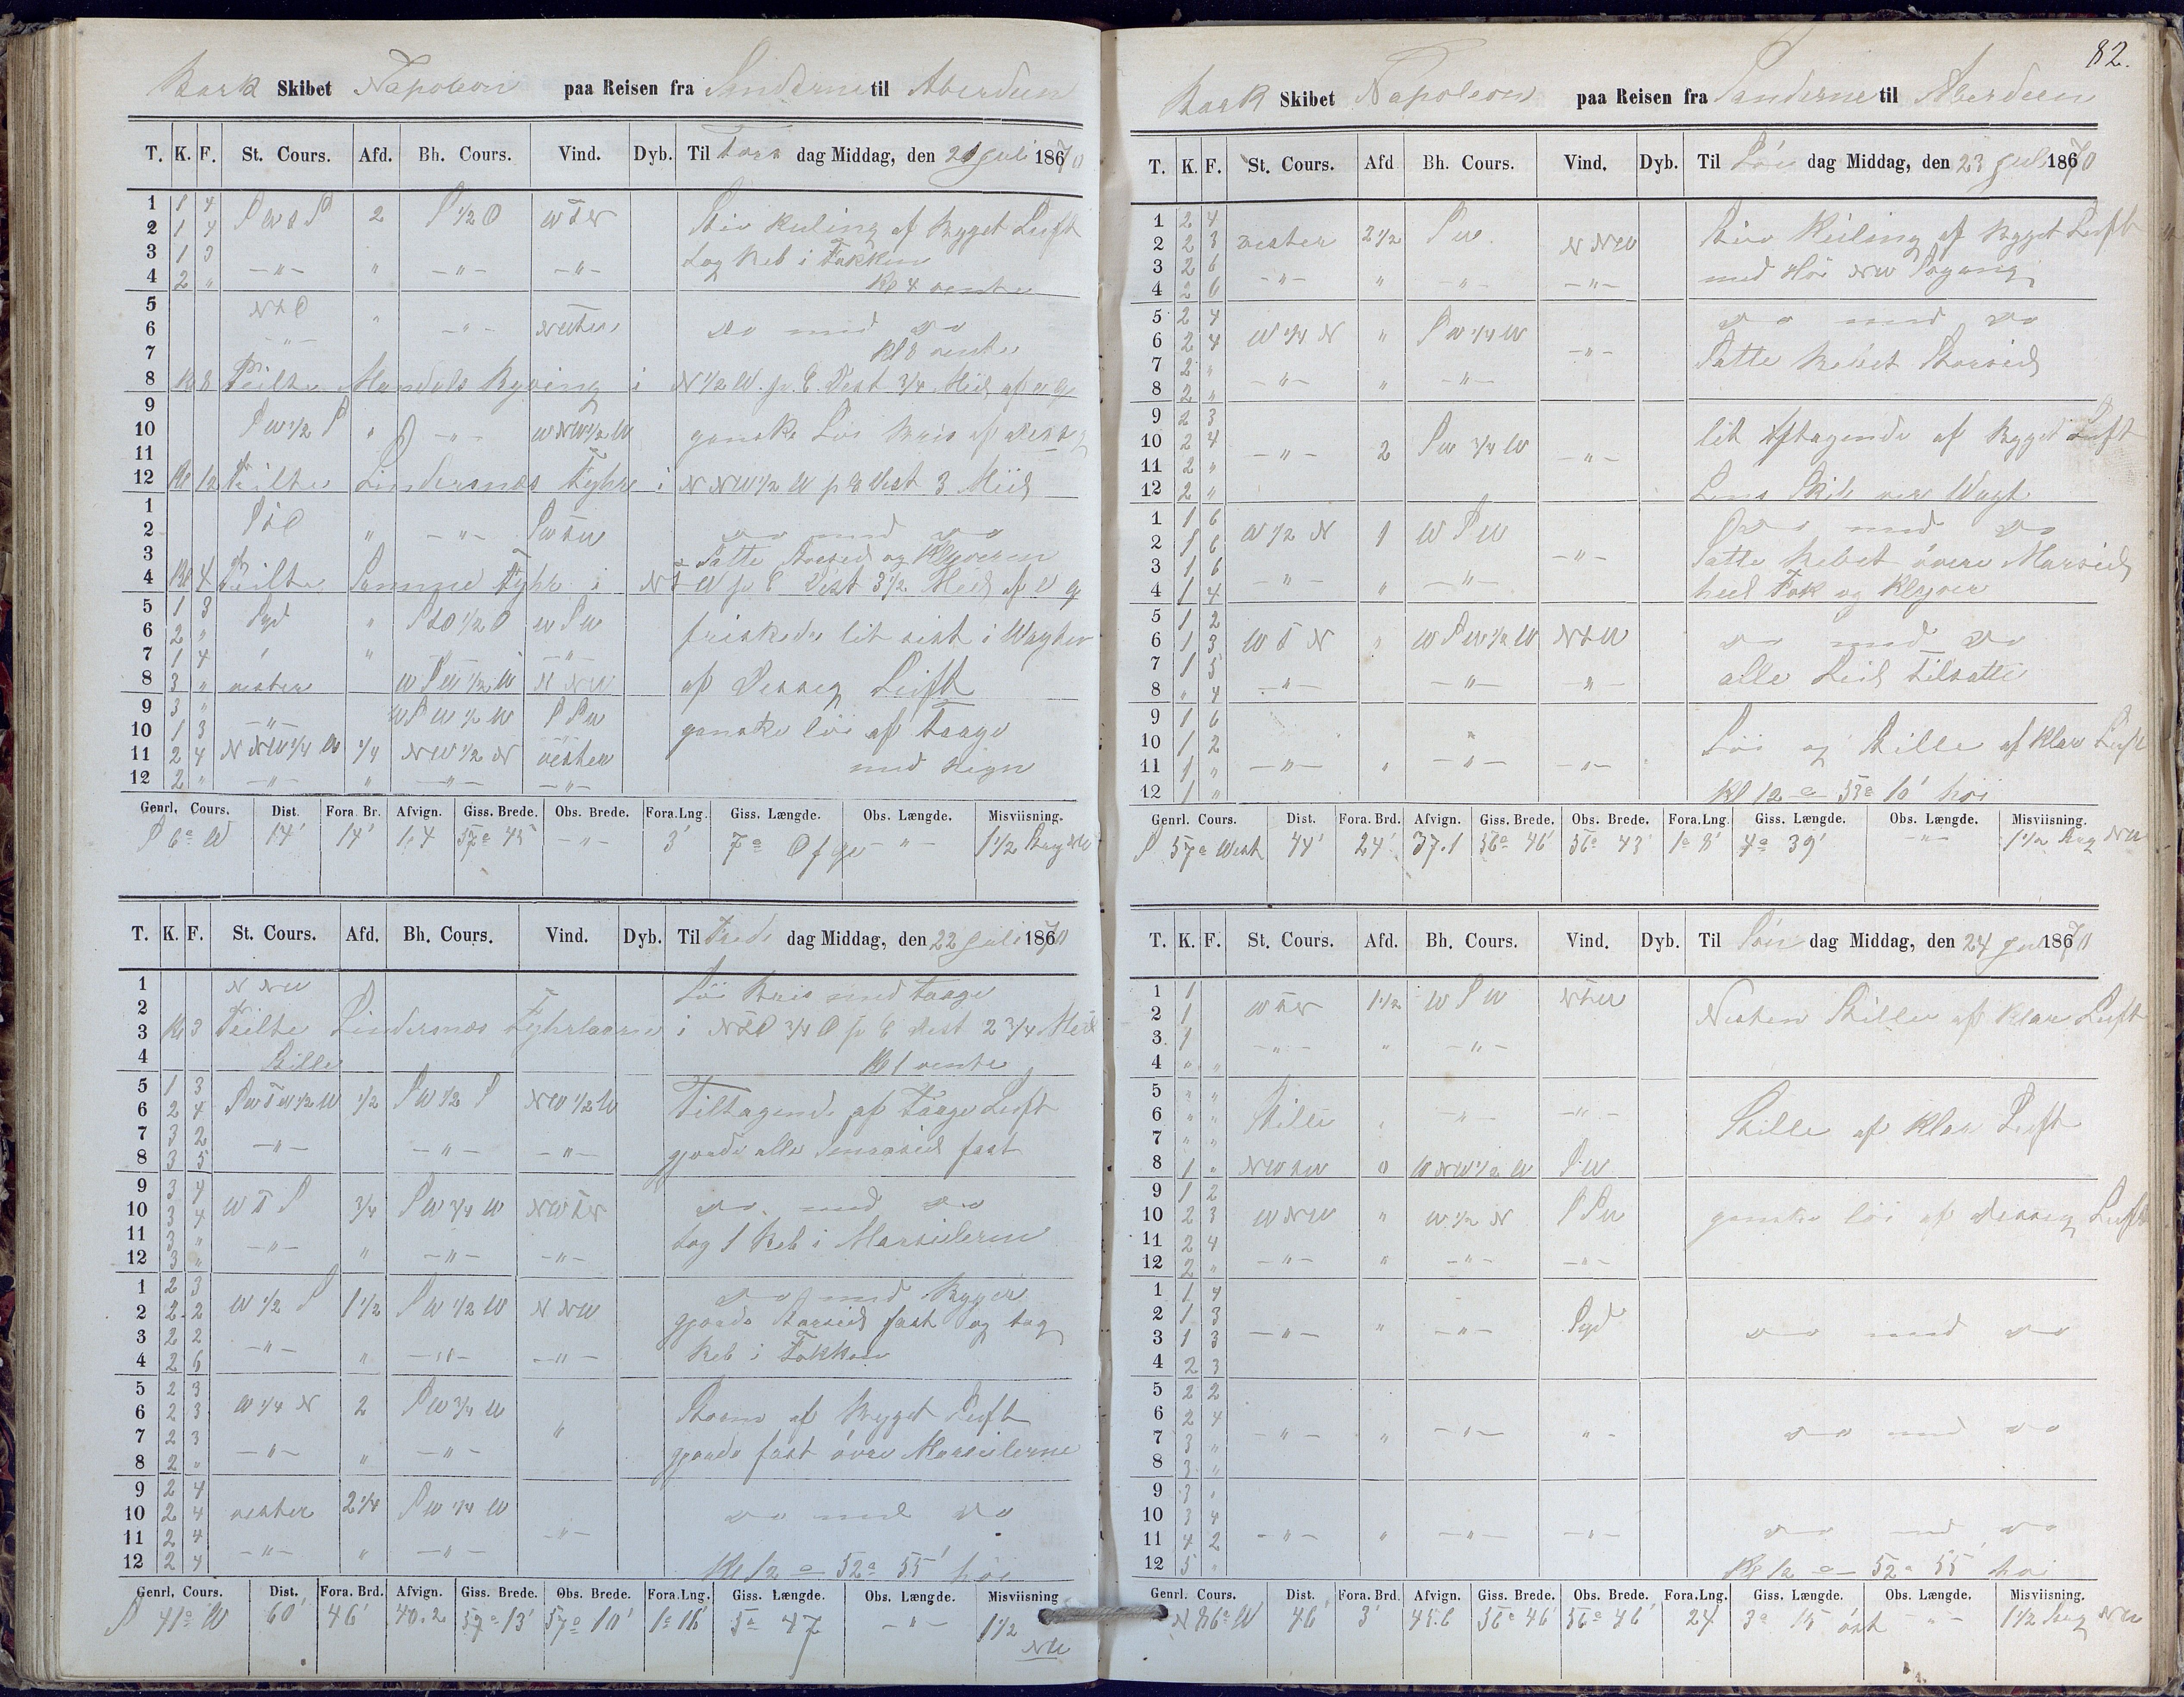 Bark Skibet Napoleon paa Reisen fra Sanderne til Aberdeen
T. K. F. St. Cours. Afd. Bh. Cours. Vind. Dyb. Til Tors dag Middag, den 21 Juli 1870
1 1 4 S ½ O Stiv Kuling af Bygget Luft
2 1 4 S W t S 2 W t N
3 1 3 tog Reb i Fokken
4 2 " —"— " —"— —"— Kl 4 vente
5 N t O
6 " —"— do med do
7 Kl 8 vente
8 Kl 8 Peilte Mandals Ryving i N ½ W. p. C. Dist ¾ Miil af v g
9
10 S W ½ S " —"— W N W ½ W ganske Löi Bris af
11
12 Kl 12 Peilte Lindersnæs Fyhr i N N W ½ W p C Dist 3 Miil
1
2 S t O " —"— S W t W do med do
3 Satte Storseil og Klyveren
4 Kl 4 Peilte Samme Fyhr i N t W p C Dist 3½ Miil af v g
5 1 3 Syd " S t O ½ O W S W
6 2 " friskede lit sist i Wagten
7 1 4 " —"—
8 3 " vester W S W ½ W N N W af Disseg Luft
9 3 " W S W ½ W S S W
10 1 3 —"— ganske löi af Taage
11 2 4 N N W ¼ W ¼ N W ½ N vesten
12 2 " —"— " —"— —"— med Regn
Genrl. Cours. Dist. Fora. Br. Afvign. Giss. Brede. Obs. Brede. Fora.Lng. Giss. Længde. Obs. Længde. Misviisning.
S 6° W 14' 14' 1,4 57° 45' —"— 3' 7° O f g —"— 1½ Streg NW
T. K. F. St. Cours. Afd. Bh. Cours. Vind. Dyb. Til Fre dag Middag, den 22 Juli 1870
1 N N W Löi Bris med Taage
2
3 Kl 3 Peilte Lindersnæs Fyhrtaarne i N t O ¾ O p C Dist 2¾ Miil
4 Stille Kl 1 vente
5 1 3
6 2 4 S W t W ½ W ½ S W ½ S N W ½ W Tiltagende af Taage Luft
7 3 2
8 3 5 —"— —"— —"— gjorde alle Smaaseil fast
9 3 4
10 3 4 W t S ¾ S W ¾ W N W t N do med do
11 3 "
12 3 " —"— " —"— —"— tog 1 Reb i Marseilerne
1 2 3 do med Byger
2 2 2 W ½ S 1½ S W ½ W N N W gjorde Storseil fast og tog
3 2 2
4 2 6 —"— " —"— —"— Reb i Fokken
5 2 3
6 2 3 W ¼ N 2 S W ¾ W Storm af Bygget Luft
7 2 3 "
8 2 " —"— " —"— gjorde fast övre Marseilerne
9 2 4
10 2 4 vester 2¼ S W ¼ W do med do
11 2 4 —"—
12 2 4 —"— " —"— Kl 12 — 52° 55' höi
Genrl. Cours. Dist. Fora. Brd. Afvign. Giss. Brede. Obs. Brede. Fora.Lng. Giss. Længde. Obs. Længde. Misviisning
S 41° W 60' 46' 40.2 57° 13' 57° 10' 1° 16' 5° 47 —"— 1½ NW
82.
Bark Skibet Napoleon paa Reisen fra Sanderne til Aberdeen
T. K. F. St. Cours. Afd Bh. Cours. Vind. Dyb. Til Lör dag Middag, den 23 Juli 1870
1 2 4 Stiv Kuling af Bygget Luft
2 2 3 vester 2½ S W. N N W
3 2 6 med Höi NW Sögang
4 2 6 —"— " —"— —"—
5 2 4 do med do
6 2 4 W ¼ N " S W ¼ W
7 2 " —"— Satte Rebet Storseil
8 2 " —"— " —"—
9 2 3
10 2 4 lit Aftagende af Bygget Luft
11 2 " —"— 2 S W ¾ W —"—
12 2 " Lens Skib ver Wagt
1 1 6 do med do
2 1 6 W ½ N 1 W S W
3 1 6 —"— Satte Rebet övere Marseil
4 1 4 —"— " —"— heel Fok og Klyver
5 1 2
6 1 3 W t N " W S W ½ W N t W do med do
7 1 5 alle Seil tilsatte
8 " 4 —"— —"— —"—
9 1 6
10 1 2 " Löi og Stille af klar Luft
11 1 " —"— " —"— —"—
12 1 " Kl 12 — 53° 10' höi
Genrl. Cours. Dist. Fora. Brd. Afvign. Giss. Brede. Obs. Brede. Fora.Lng. Giss. Længde. Obs. Længde. Misviisning.
S 57° West 44' 24' 37.1 56° 46' 56° 43' 1° 8' 4° 39' —"— 1½ Streg NW
T. K. F. St. Cours. Afd. Bh. Cours. Vind. Dyb. Til Sön dag Middag, den 24 Juli 1870
1 1 W t N 1½ W S W N t W
2 1 Nesten Stille af klar Luft
3 1
4 " " —"— " —"—
5 " "
6 " " Stille " —"— —"— Stille af klar Luft
7 " "
8 1 " N W t W 0 W N W ½ W S W
9 1 2
10 2 3 W N W " W ½ N S S W ganske löi af Disseg Luft
11 2 4
12 2 " —"— " —"— —"—
1 1 4
2 1 3 Syd
3 1 3 —"— " —"— do med do
4 2 3
5 2 2
6 2 4
7 3 " —"— " —"— " — do med do
8 3 "
9 3 "
10 3 4
11 4 2 —"— " —"— —"— do med do
12 5 " Kl 12 — 52° 55' höi
Genrl. Cours. Dist. Fora. Brd. Afvign. Giss. Brede. Obs. Brede. Fora.Lng. Giss. Længde. Obs. Længde. Misviisning.
N 86° W 46' 3' 45.6 56° 46' 56° 46' 24 3° 15 öst —"— 1½ Streg NW